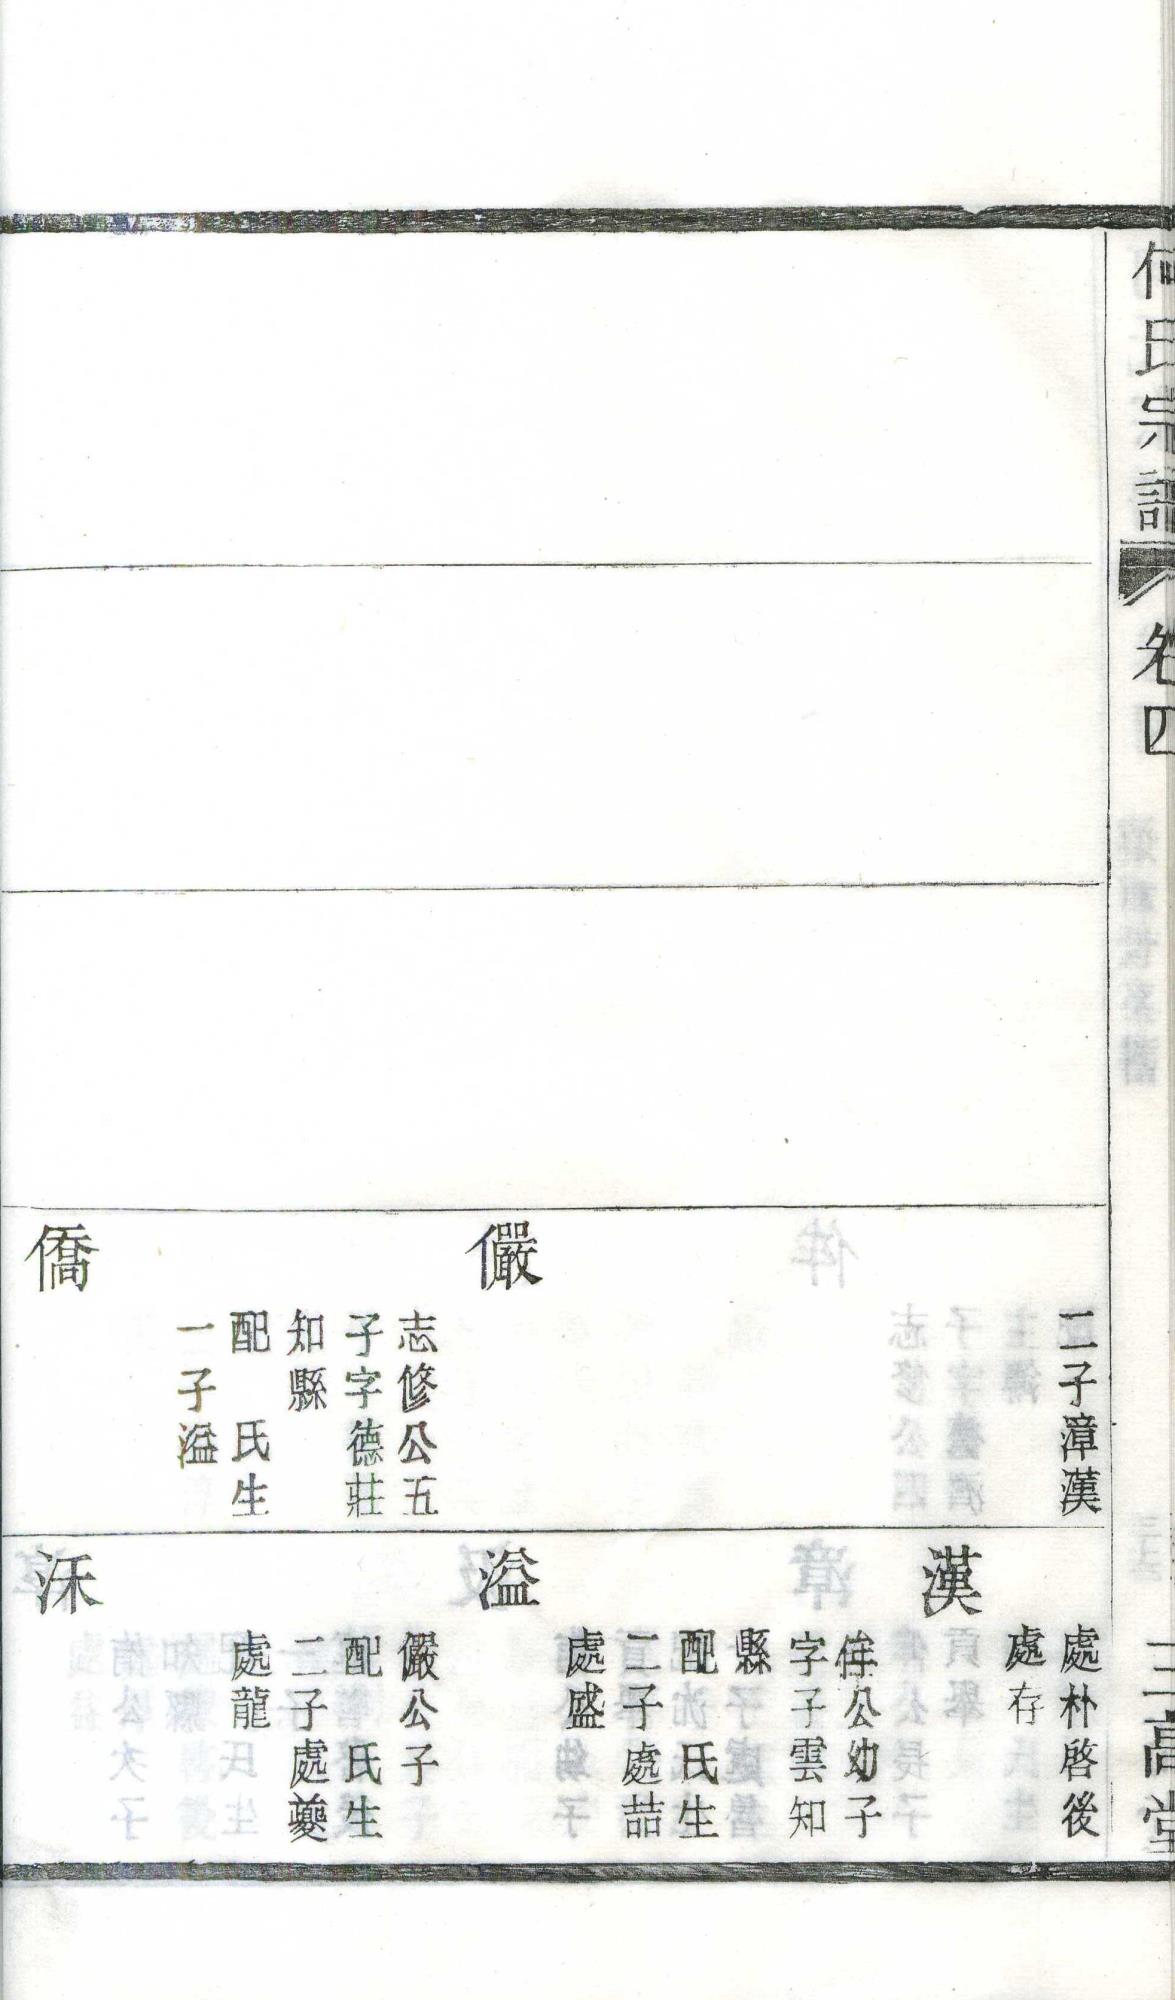 何氏宗譜
卷四
三高堂
二子漳漢
儼
志修公五
子字德莊
知縣
配　氏生
一子溢
僑
處朴啓後
處存
漢
侔公幼子
字子雲知
縣
配沈氏生
二子處喆
處盛
溢
儼公子
配　氏生
二子處夔
處龍
沃